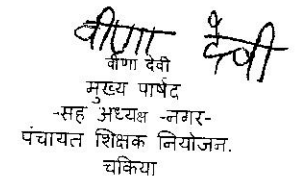 वीणा देवी
वीणा देवी
मुख्य पार्षद
-सह अध्यक्ष -नगर-
पंचायत शिक्षक नियोजन.
चकिया